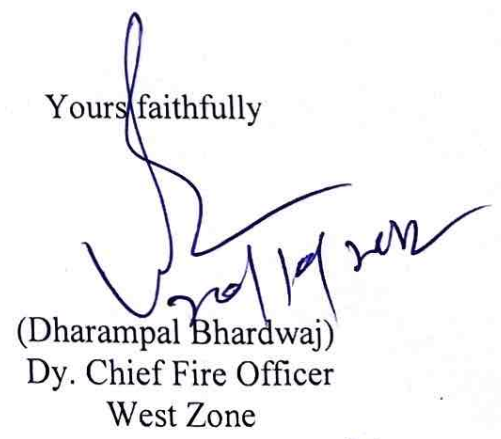 Yours faithfully
(Dharampal Bhardwaj)
Dy. Chief Fire Officer
West Zone